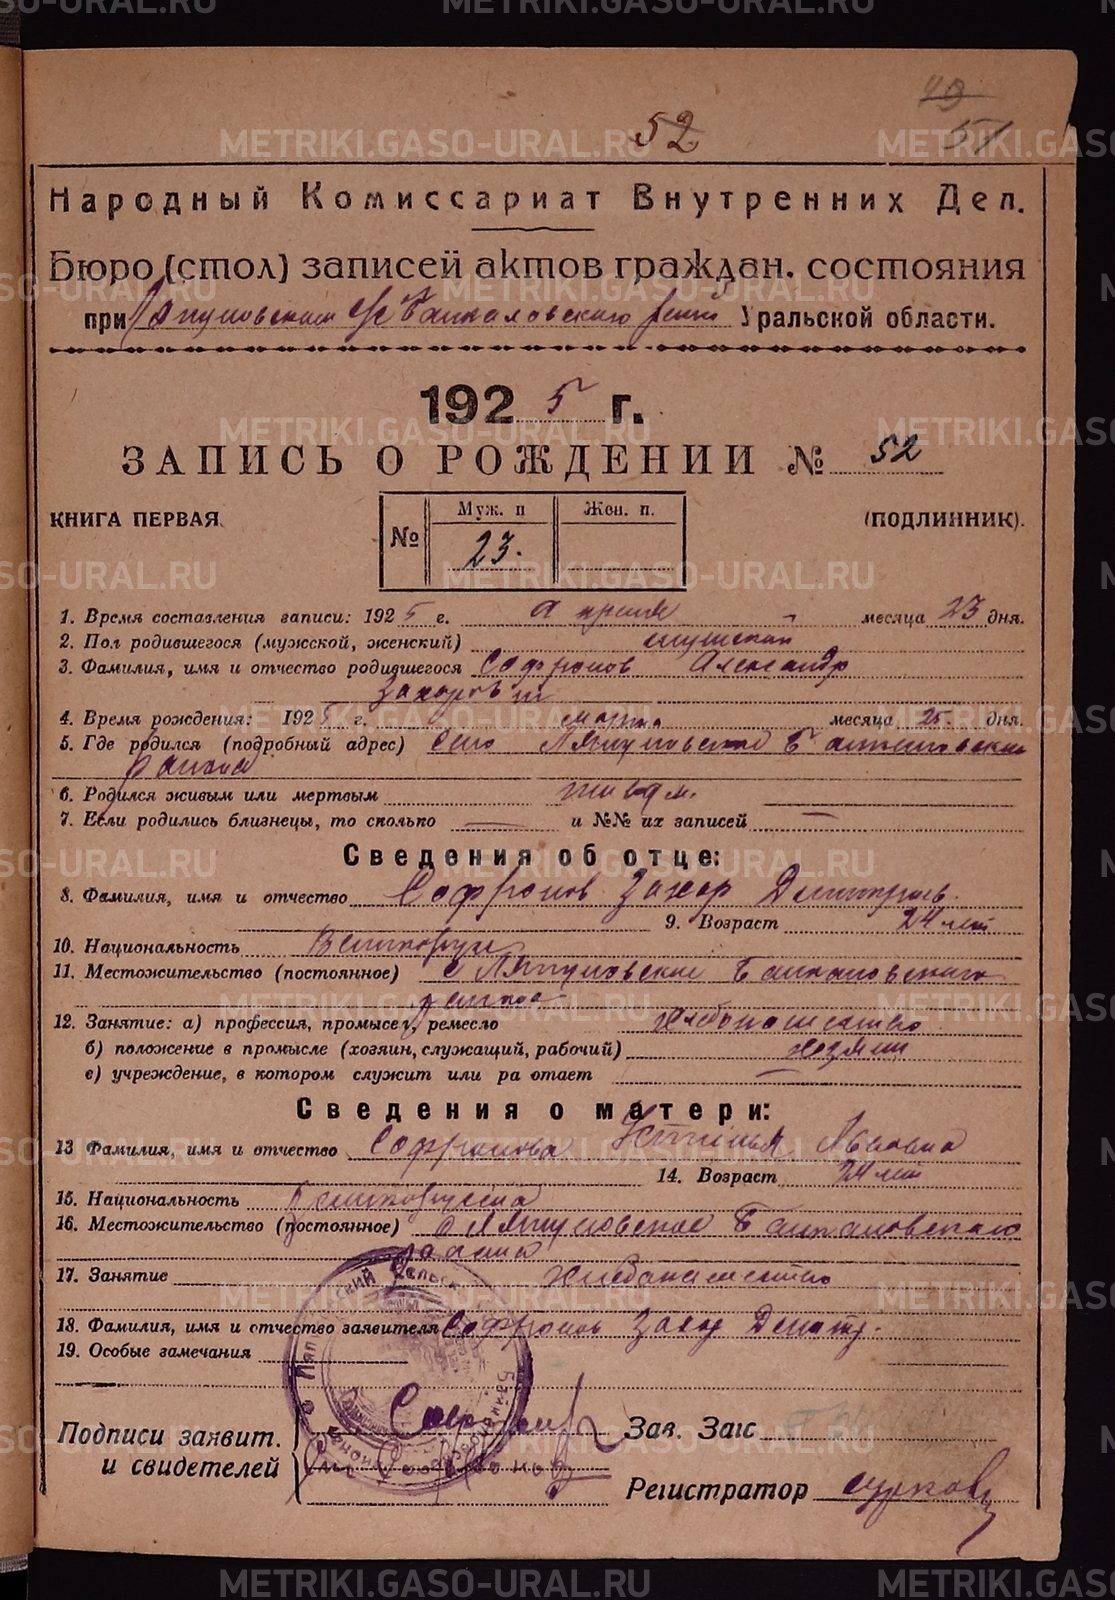 49
51
52
Народный Комиссариат Внутренних Дел.
Бюро (стол) записей актов граждан. состояния
при Ляпуновском с/с Байкаловского рай Уральской области.
1925 г.
ЗАПИСЬ О РОЖДЕНИИ № 52
КНИГА ПЕРВАЯ (ПОДЛИННИК).
№ Муж. п Жен. п.
23.
1. Время составления записи: 1925 г. апреля месяца 23 дня.
2. Пол родившегося (мужской, женский) мужской
3. Фамилия, имя и отчество родившегося Софронов Александр
Захаров
4. Время рождения: 1925 г. марта месяца 25. дня.
5. Где родился (подробный адрес) село Ляпуновское Байкаловского
района
6. Родился живым или мертвым живым.
7. Если родились близнецы, то сколько — и №№ их записей —
Сведения об отце:
8. Фамилия, имя и отчество Софронов Захар Дмитриев.
9. Возраст 24 лет
10. Национальность Великорус
11. Местожительство (постоянное) с Ляпуновское Байкаловского
района
12. Занятие: а) профессия, промысел, ремесло хлебопашество
б) положение в промысле (хозяин, служащий, рабочий) хозяин
в) учреждение, в котором служит или ра отает —
Сведения о матери:
13 Фамилия, имя и отчество Софронова Устинья Львовна
14. Возраст 24 лет
15. Национальность Великорусска
16. Местожительство (постоянное) с Ляпуновское Байкаловского
района
17. Занятие хлебопашество
18. Фамилия, имя и отчество заявителя Софронов Захар Дмитр.
19. Особые замечания
Подписи заявит.
и свидетелей
Зав. Загс
Регистратор
METRIKI.GASO-URAL.RU